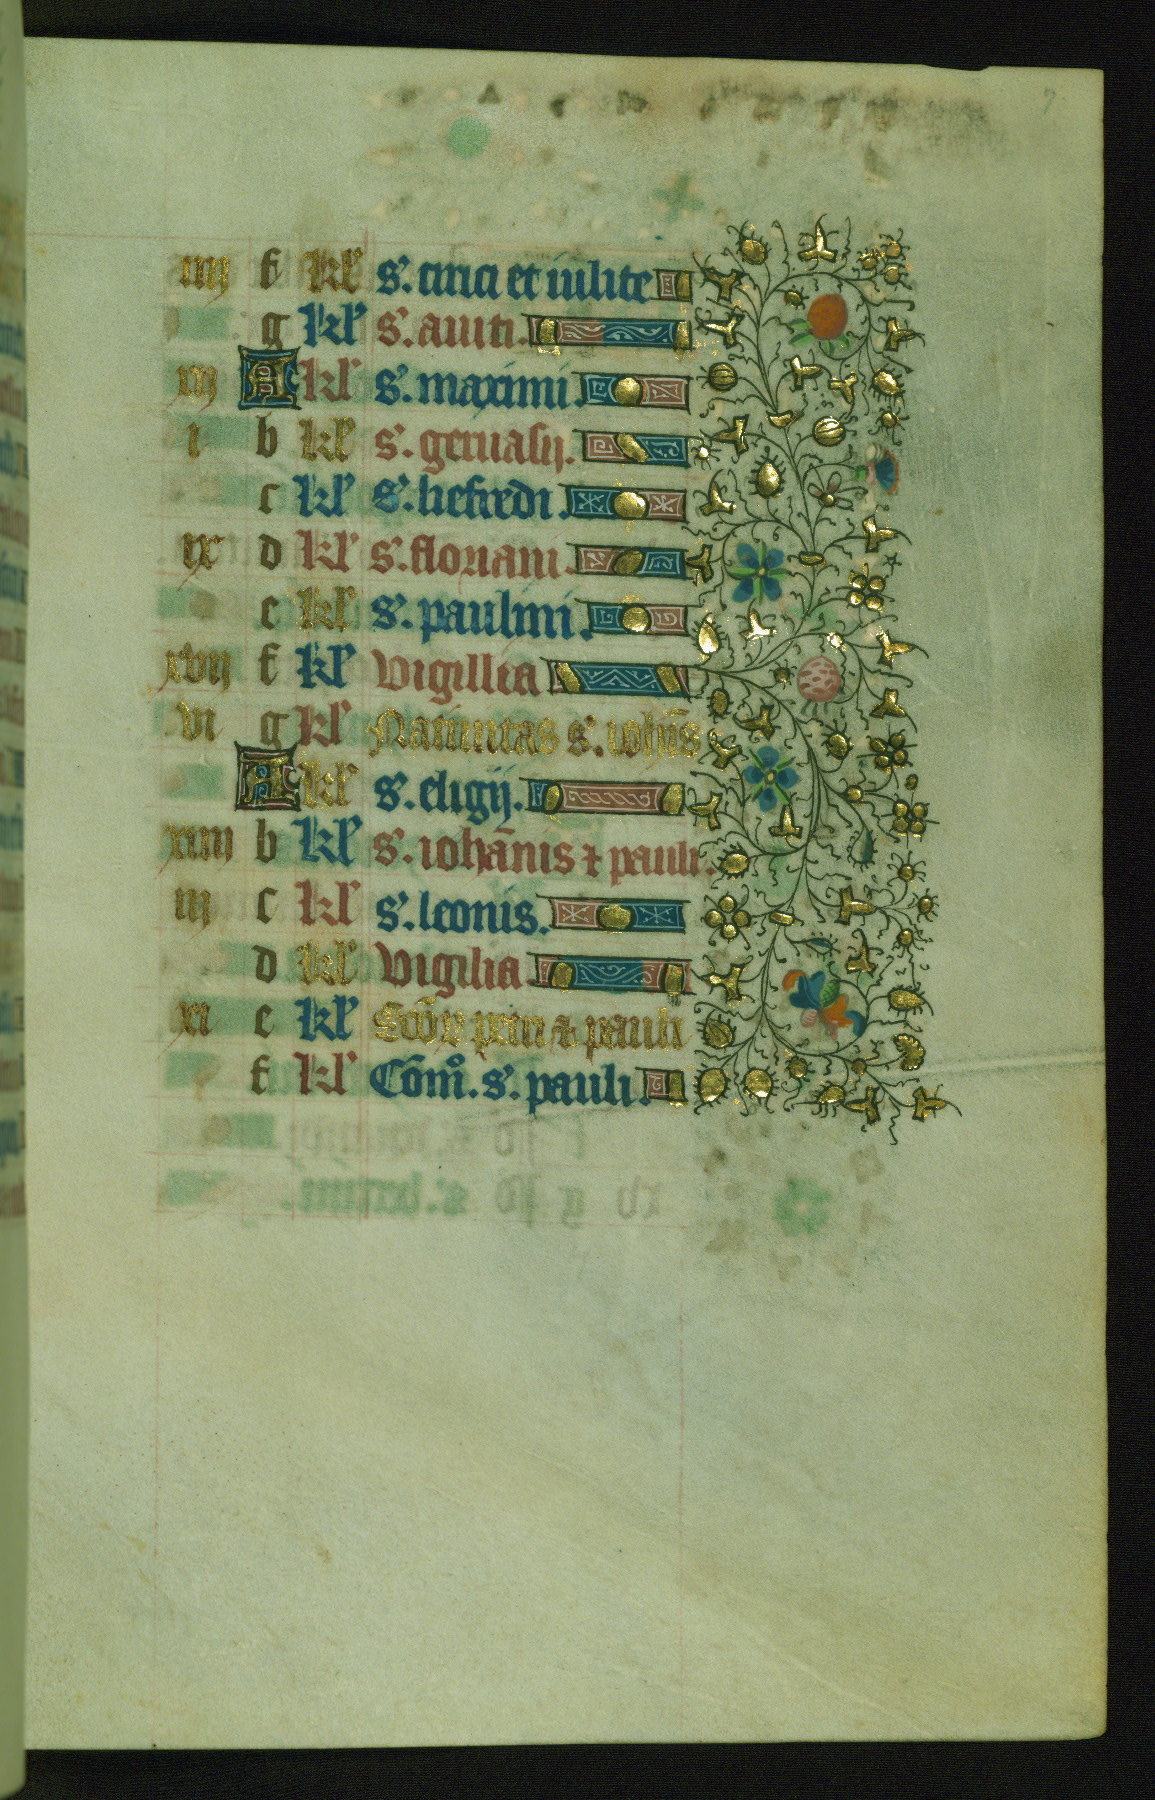 7
iiij f kl' s'. cirici et iulite
g kl' s'. auiti.
xij A kl' s'. maximi.
i b kl' s'. geruasij.
c kl' s'. liefredi.
ix d kl' s'. floriani
e kl' s'. paulini.
xvij f kl' Vigillia
vi g kl' Natiuitas s'. ioh̄is
A kl' s'. eligij.
xiiij b kl' s'. iohānis ⁊ pauli.
iij c kl' s'. leonis.
d kl' Vigilia.
xi e kl' petri & pauli
f kl' Com̊. s'. pauli.